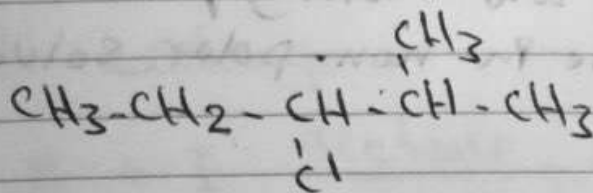 CH3
CH3-CH2-CH-CH-CH3
Cl